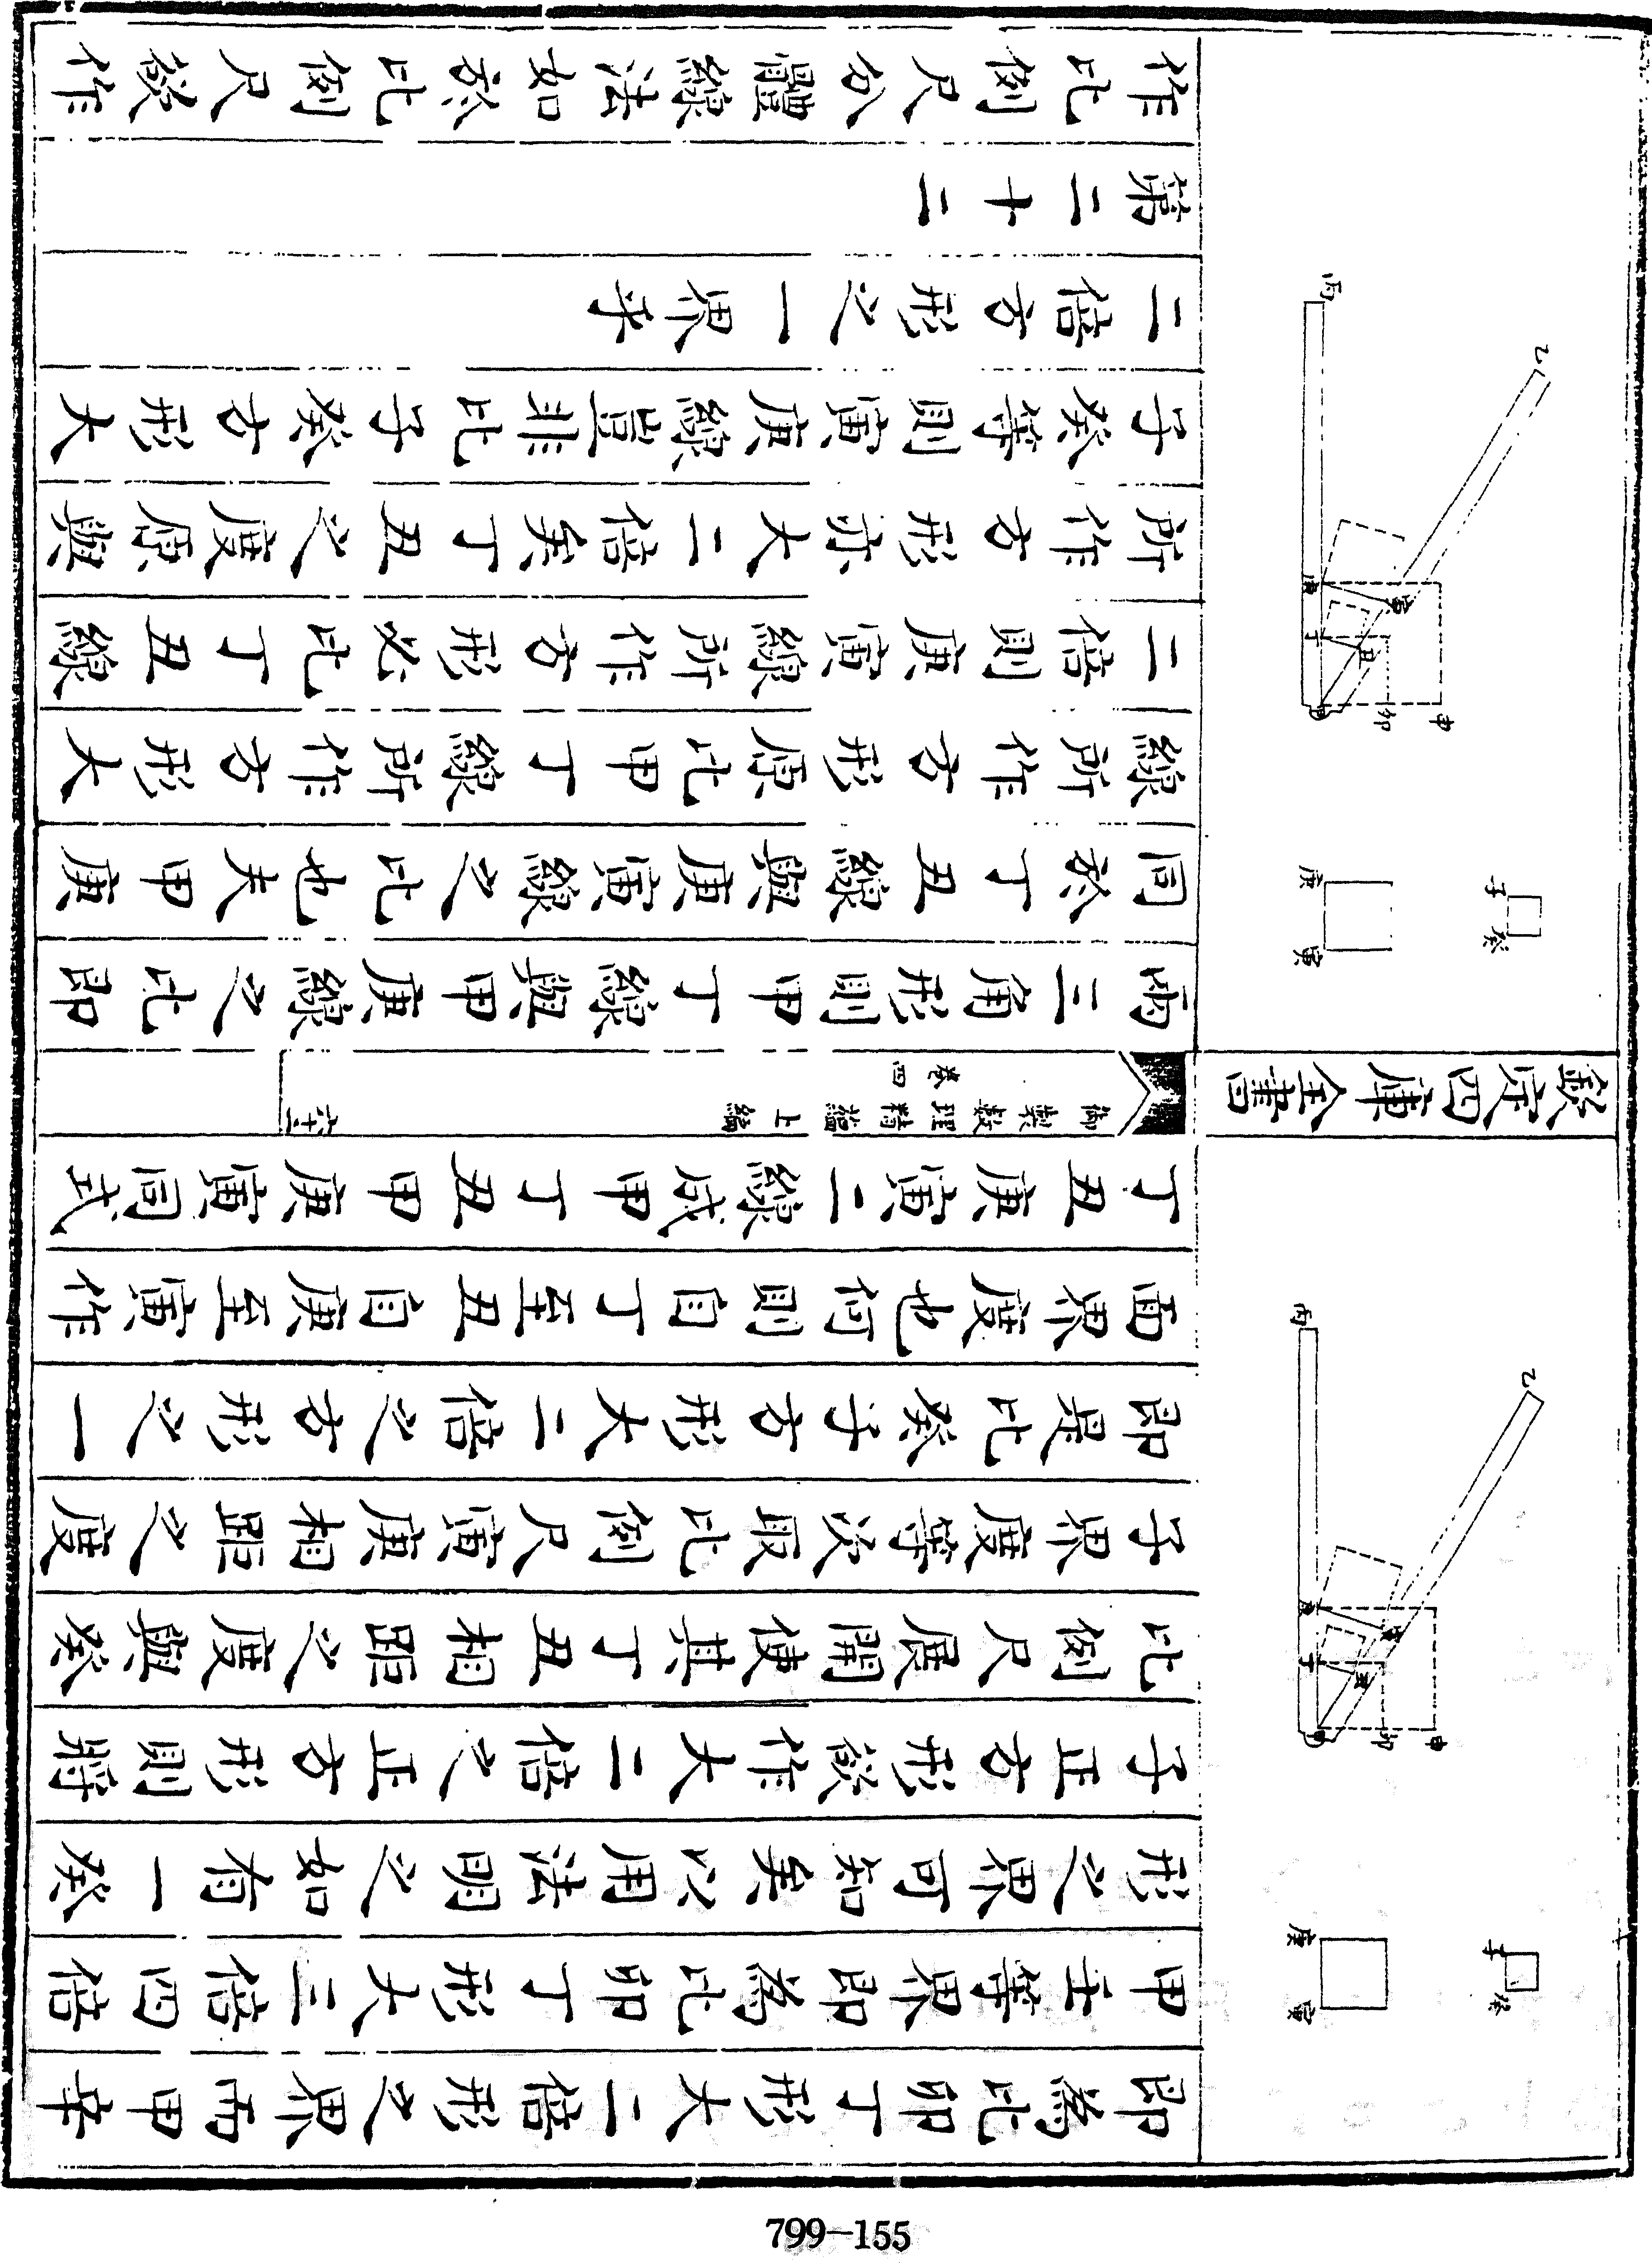 即為比卯丁形大二倍形之界而甲辛
甲壬等界即為比卯丁形大三倍四倍
形之界可知矣以用法明之如有一癸
子正方形欲作大二倍之正方形則將
比例尺展開使其丁丑相距之度與癸
子界度等次取比例尺寅庚相距之度
即是比癸子方形大二倍之方形之一
面界度也何則自丁至丑自庚至寅作
丁丑庚寅二線成甲丁丑甲庚寅同式
丙
乙
庚
寅
丁
丑
甲
卯
申
庚
寅
子
癸
欽定四庫全書
御製數理精蘊上編
卷四
兩三角形則甲丁線與甲庚線之比即
同於丁丑線與庚寅線之比也夫甲庚
線所作方形原比甲丁線所作方形大
二倍則庚寅線所作方形必比丁丑線
所作方形亦大二倍矣丁丑之度原與
子癸等則寅庚線豈非比子癸方形大
二倍方形之一界乎
第二十二
作比例尺分體線法如於比例尺欲作
丙
乙
庚
寅
丁
丑
甲
卯
申
庚
寅
子
癸
799-155